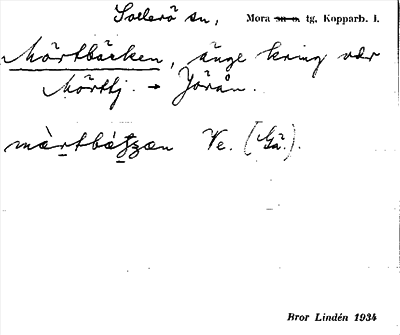 Sollerö sn, Mora sn o. tg, Kopparb. l.
Mörtbäcken, änge kring vår
Mörttj. → Jörån.
Ve. (Gä.).
Bror Lindén 1934